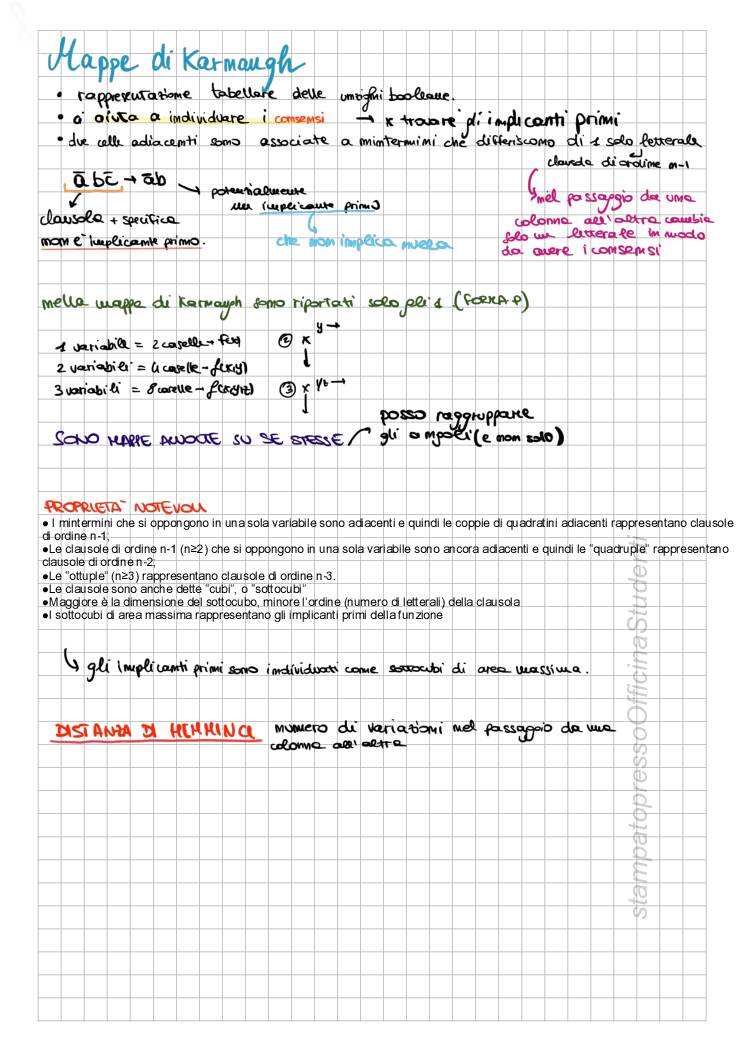 Mappe di Karnaugh
• rappresentazione tabellare delle funzioni booleane.
• ci aiuta a individuare i consensi → x trovare gli implicanti primi
• due celle adiacenti sono associate a mintermini che differiscono di 1 solo letterale
clausola di ordine n-1
a̅bc̅ → a̅b
potenzialmente
un implicante primo
clausola + specifica
non è implicante primo.
che non implica nulla
nel passaggio da una
colonna all'altra cambia
solo un letterale in modo
da avere i consensi
nella mappe di Karnaugh sono riportati solo gli 1 (FORMA P)
1 variabile = 2 caselle → f(x)
2 variabili = 4 caselle - f(x,y)
3 variabili = 8 caselle - f(x,y,z)
② x y →
③ x yz →
SONO MAPPE AVVOLTE SU SE STESSE
posso raggruppare
gli angoli (e non solo)
PROPRIETA' NOTEVOLI
● I mintermini che si oppongono in una sola variabile sono adiacenti e quindi le coppie di quadratini adiacenti rappresentano clausole
di ordine n-1;
●Le clausole di ordine n-1 (n≥2) che si oppongono in una sola variabile sono ancora adiacenti e quindi le "quadruple" rappresentano
clausole di ordine n-2;
●Le "ottuple" (n≥3) rappresentano clausole di ordine n-3.
●Le clausole sono anche dette "cubi", o "sottocubi"
●Maggiore è la dimensione del sottocubo, minore l'ordine (numero di letterali) della clausola
●I sottocubi di area massima rappresentano gli implicanti primi della funzione
↳ gli implicanti primi sono individuati come sottocubi di area massima.
DISTANZA DI HEMMING numero di variazioni nel passaggio da una
colonna all'altra
stampatopressoOfficinaStudenti